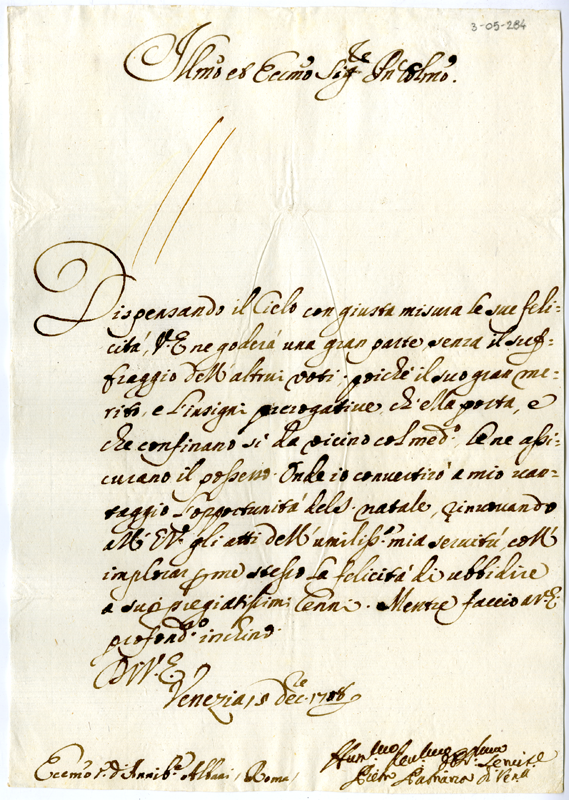 3-05-284
Illmo et Eccmo Sigre
Dispensando il Cielo con giusta misura le sue feli-
cità, V.E. ne goderà una gran parte, senza il suf-
fraggio dell'altrui voti, poiché il suo gran me-
rito, e l'insigni prerogative, ch'ella porta, e
che confinano sì da vicino col medo, le ne assi-
curano il possesso. Onde io convertirò a mio van-
taggio l'opportunità del S. natale, rinovando
all'E.V. gli atti dell'umilissa mia servitù, coll'
implorar p me stesso la felicità di ubbidire
a suoi pregiatissimi Cenni. Mentre faccio a V.E.
profondmo inchino.
Di V.E.
Venezia, Dec.
Eccmo S. D. Annibe Albani, Roma,
Pietro Patriarca di Vena